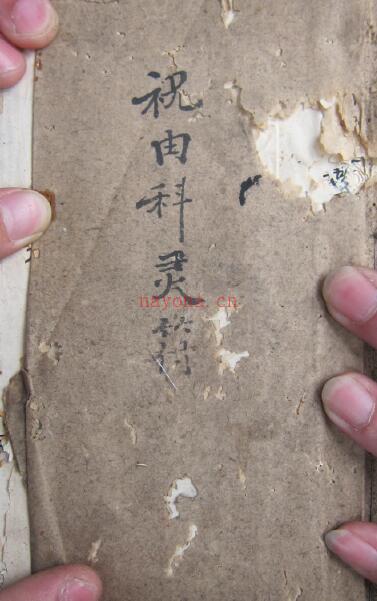 祝由科灵
nayona.cn